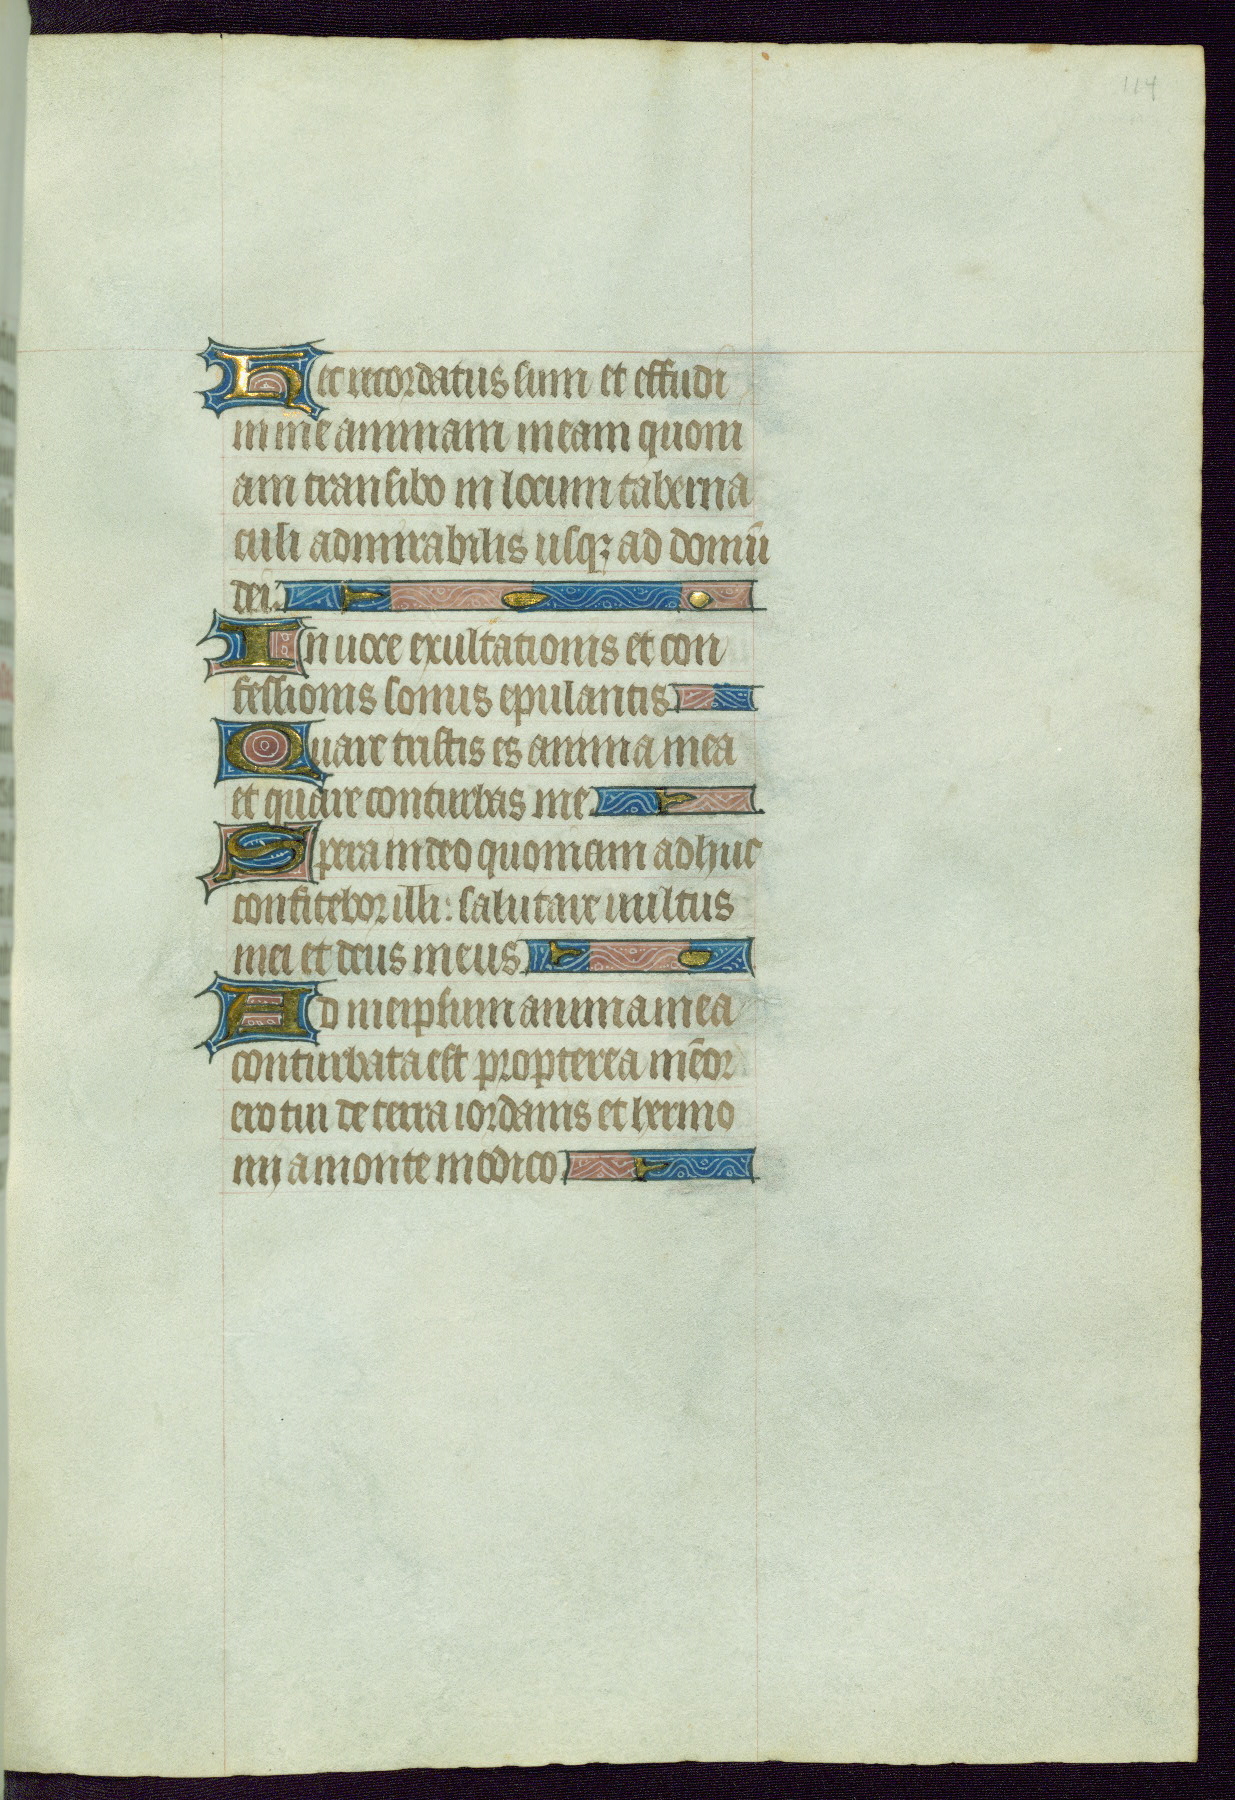 114
Hec recordatus sum et effudi
in me animam meam quoni
am transibo in locum taberna
culi admirabilis usqꝫ ad domū
dei.
In uoce exultationis et con
fessionis sonus epulantis
Quare tristis es anima mea
et quare conturbas me
Spera in deo quoniam adhuc
confitebor illi: salutare uultus
mei et deus meus
Ad meipsum anima mea
conturbata est propterea mēor
ero tui de terra iordanis et hermo
nij a monte modico